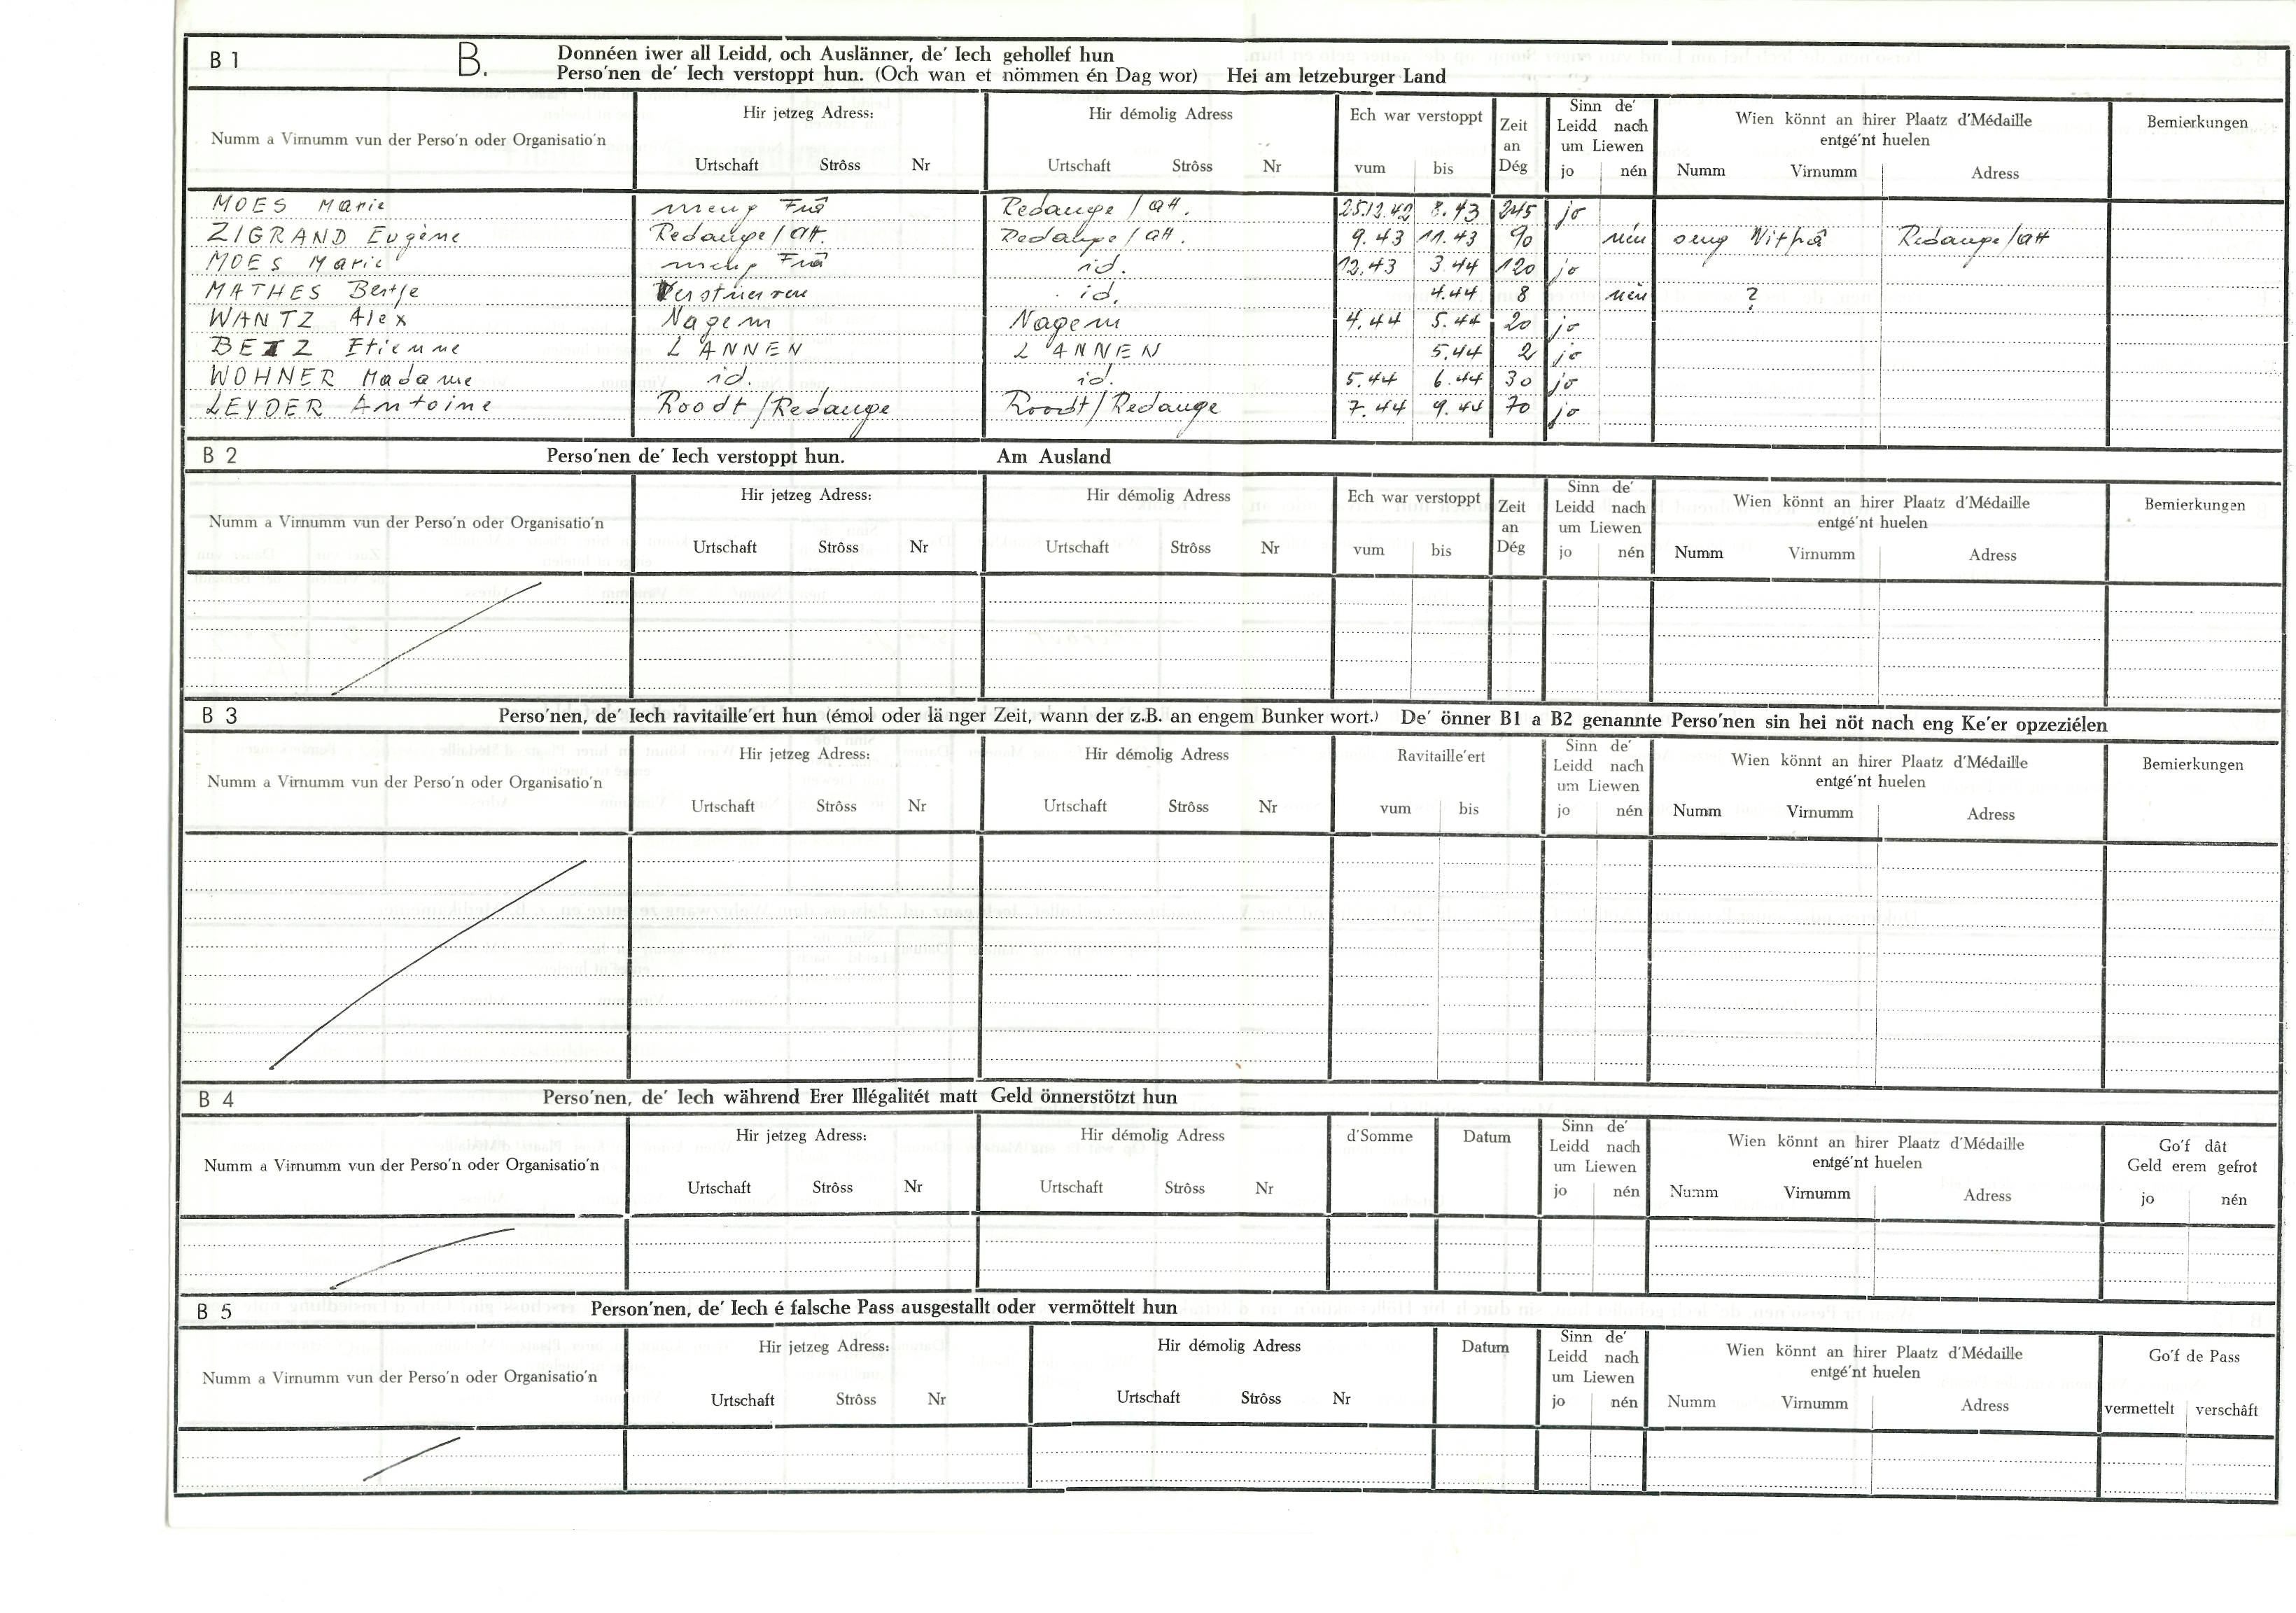 B 1 B. Donnéen iwer all Leidd, och Auslänner, de' Iech gehollef hun
Perso'nen de' Iech verstoppt hun. (Och wan et nömmen én Dag wor) Hei am letzeburger Land
Numm a Virnumm vun der Perso'n oder Organisatio'n Hir jetzeg Adress: Hir démolig Adress Ech war verstoppt Zeit an Dég Sinn de' Leidd nach um Liewen Wien könnt an hirer Plaatz d'Médaille entgé'nt huelen Bemierkungen
Urtschaft Strôss Nr Urtschaft Strôss Nr vum bis jo nén Numm Virnumm Adress
MOES Marie meng Frâ Redange/Att. 25.12.42 8.43 245 jo
ZIGRAND Eugène Redange/Att. Redange/Att. 9.43 11.43 90 nén seng Witfrâ Redange/Att
MOES Marie meng Frâ id. 12.43 3.44 120 jo
MATHES Bertje Verstuerwen id. 4.44 8 nén ?
WANTZ Alex Nagem Nagem 4.44 5.44 20 jo
BETZ Etienne LANNEN LANNEN 5.44 2 jo
WOHNER Madame id. id. 5.44 6.44 30 jo
LEYDER Antoine Roodt/Redange Roodt/Redange 7.44 9.44 70 jo
B 2 Perso'nen de' Iech verstoppt hun. Am Ausland
Numm a Virnumm vun der Perso'n oder Organisatio'n Hir jetzeg Adress: Hir démolig Adress Ech war verstoppt Zeit an Dég Sinn de' Leidd nach um Liewen Wien könnt an hirer Plaatz d'Médaille entgé'nt huelen Bemierkungen
Urtschaft Strôss Nr Urtschaft Strôss Nr vum bis jo nén Numm Virnumm Adress
B 3 Perso'nen, de' Iech ravitaille'ert hun (émol oder lä nger Zeit, wann der z.B. an engem Bunker wort.) De' önner B1 a B2 genannte Perso'nen sin hei nöt nach eng Ke'er opzeziélen
Numm a Virnumm vun der Perso'n oder Organisatio'n Hir jetzeg Adress: Hir démolig Adress Ravitaille'ert Sinn de' Leidd nach um Liewen Wien könnt an hirer Plaatz d'Médaille entgé'nt huelen Bemierkungen
Urtschaft Strôss Nr Urtschaft Strôss Nr vum bis jo nén Numm Virnumm Adress
B 4 Perso'nen, de' Iech während Erer Illégalitét matt Geld önnerstötzt hun
Numm a Virnumm vun der Perso'n oder Organisatio'n Hir jetzeg Adress: Hir démolig Adress d'Somme Datum Sinn de' Leidd nach um Liewen Wien könnt an hirer Plaatz d'Médaille entgé'nt huelen Go'f dât Geld erem gefrot
Urtschaft Strôss Nr Urtschaft Strôss Nr jo nén Numm Virnumm Adress jo nén
B 5 Person'nen, de' Iech é falsche Pass ausgestallt oder vermöttelt hun
Numm a Virnumm vun der Perso'n oder Organisatio'n Hir jetzeg Adress: Hir démolig Adress Datum Sinn de' Leidd nach um Liewen Wien könnt an hirer Plaatz d'Médaille entgé'nt huelen Go'f de Pass
Urtschaft Strôss Nr Urtschaft Strôss Nr jo nén Numm Virnumm Adress vermettelt verschâft